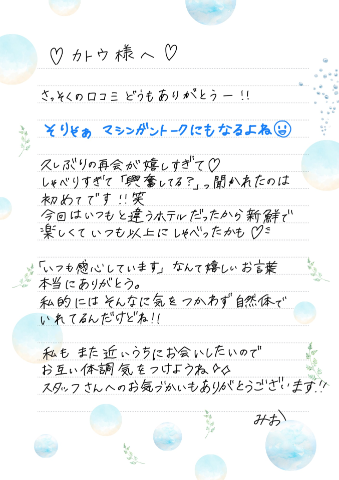 ♡ カトウ様へ ♡
さっそくの口コミ どうもありがとうー!!
そりそぁ マシンガントークにもなるよね😃
久しぶりの再会が嬉しすぎて♡
しゃべりすぎて「興奮してる?」って聞かれたのは
初めてです!!笑
今回はいつもと違うホテルだったから新鮮で
楽しくていつも以上にしゃべったかも♡
「いつも感心しています」なんて嬉しいお言葉
本当にありがとう。
私的にはそんなに気をつかわず自然体で
いれてるんだけどね!!
私も また近いうちにお会いしたいので
お互い体調 気をつけようね
スタッフさんへのお気づかいもありがとうございます!!
みお